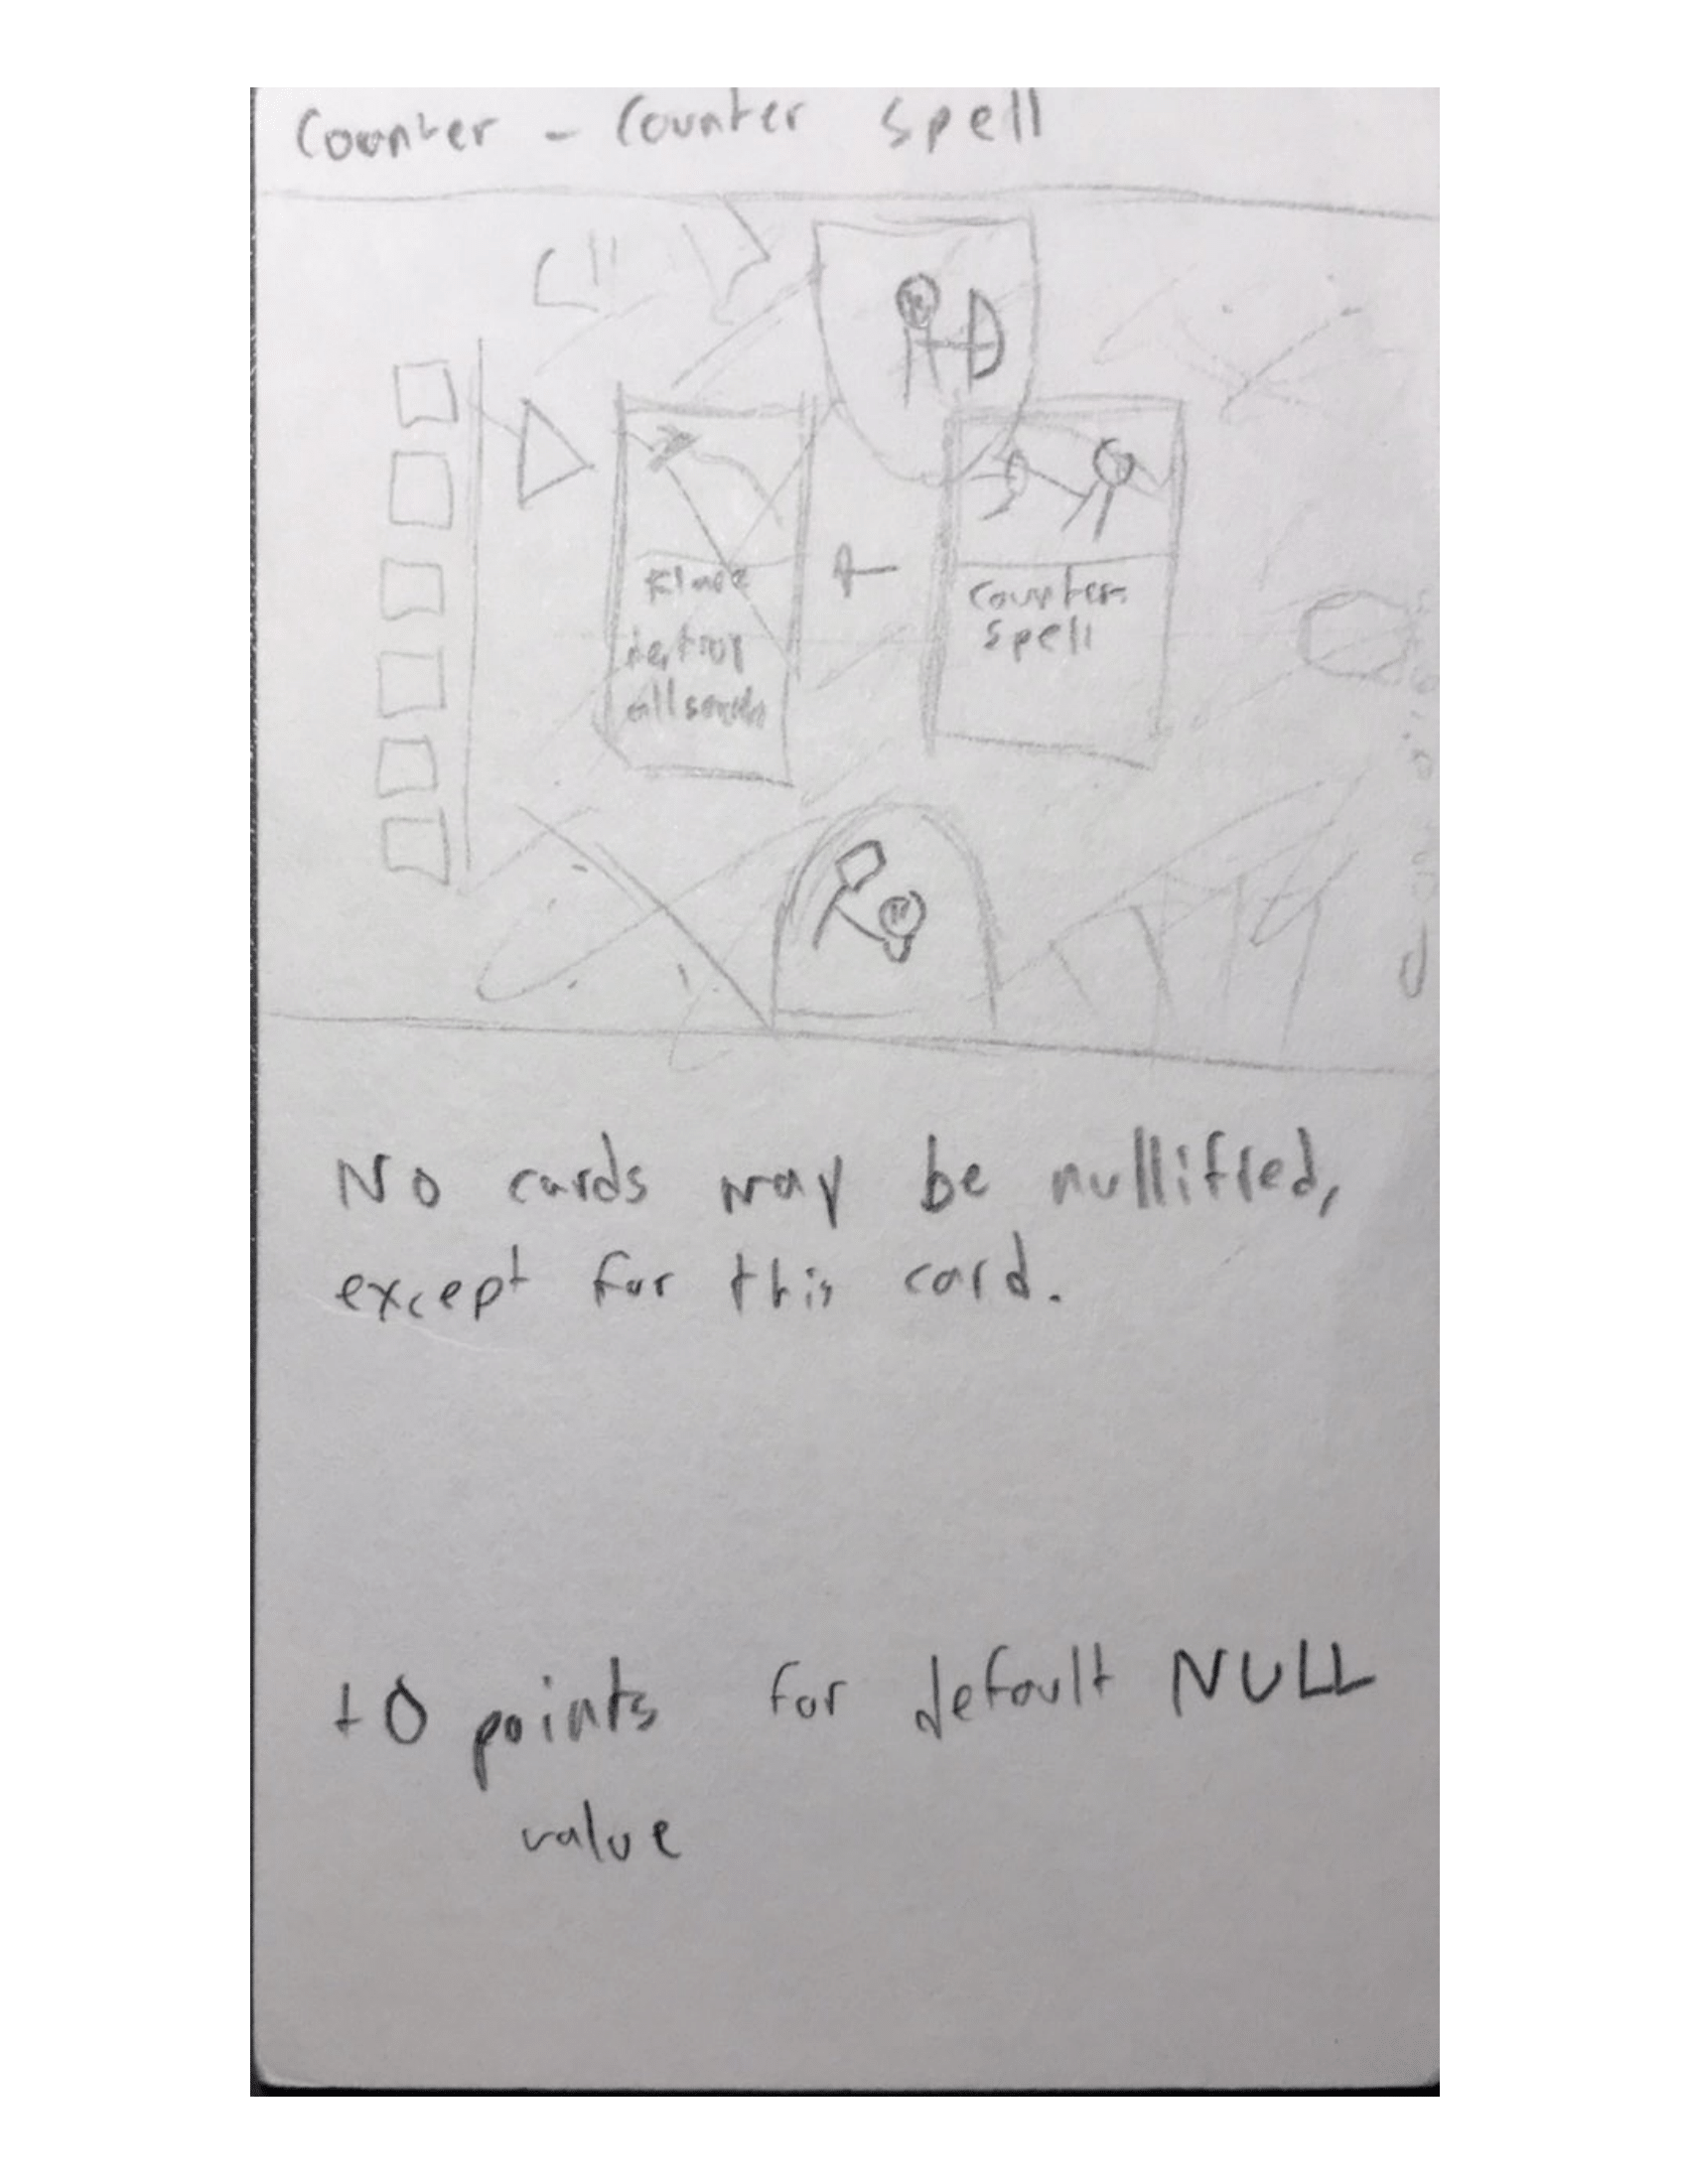 Counter - Counter Spell
destroy
all
Counter-
Spell
No cards may be nullified,
except for this card.
+0 points for default NULL
value